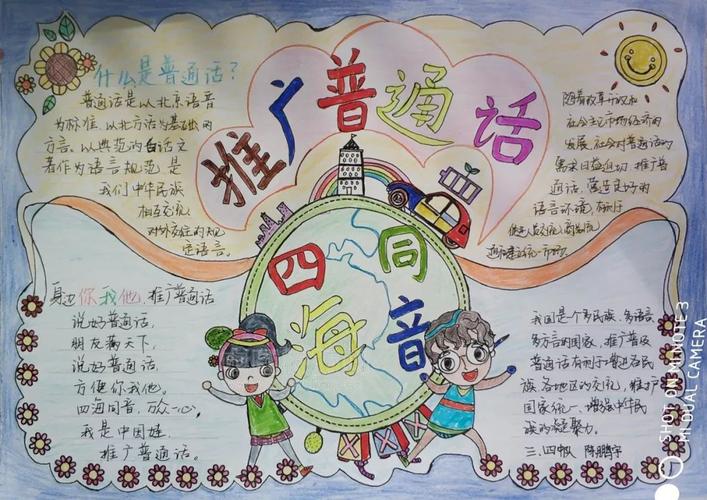 推广普通话
什么是普通话？
普通话是以北京语音
为标准，以北方话为基础的
方言，以典范的白话文
著作为语言规范，是
我们中华民族
相互交流
对外交往的规
定语言。
随着改革开放和
社会主义市场经济的
发展，社会对普通话的
需求日益迫切，推广普
通话，营造良好的
语言环境，有利于
四海
同音
身边你我他，推广普通话
说好普通话，
朋友遍天下，
说好普通话，
方便你我他。
四海同音，万众一心，
我是中国娃，
推广普通话。
我国是个多民族、多语言、
多方言的国家，推广普及
普通话有利于增进各民
族各地区的交流，维护
国家统一，增强中华民
族的凝聚力。
三、四班 陈鹏宇
SHOT ON MI NOTE 3
MI DUAL CAMERA